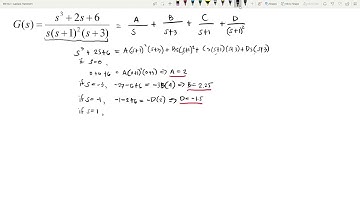 G(s) = s³ + 2s + 6 / s(s+1)²(s+3) = A/s + B/s+3 + C/s+1 + D/(s+1)²
s³ + 2s + 6 = A(s+1)²(s+3) + Bs(s+1)² + Cs(s+1)(s+3) + Ds(s+3)
if s=0,
0+0+6 = A(0+1)²(0+3) => A = 2
if s=-3, -27-6+6 = -3B(4) => B = 2.25
if s=-1, -1-2+6 = -D(2) => D = -1.5
if s=1,